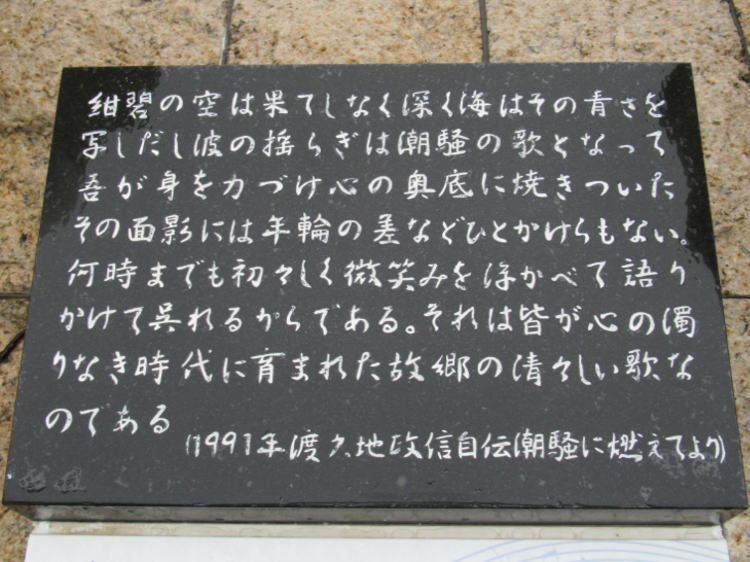 紺碧の空は果てしなく深く海はその青さを
写しだし波の揺らぎは潮騒の歌となって
吾が身を力づけ心の奥底に焼きついた
その面影には年輪の差などひとかけらもない。
何時までも初々しく微笑みをほかべて語り
かけて呉れるからである。それは皆が心の濁
りなき時代に育まれた故郷の清々しい歌な
のである
(1991年渡久地政信自伝潮騒に燃えてより)